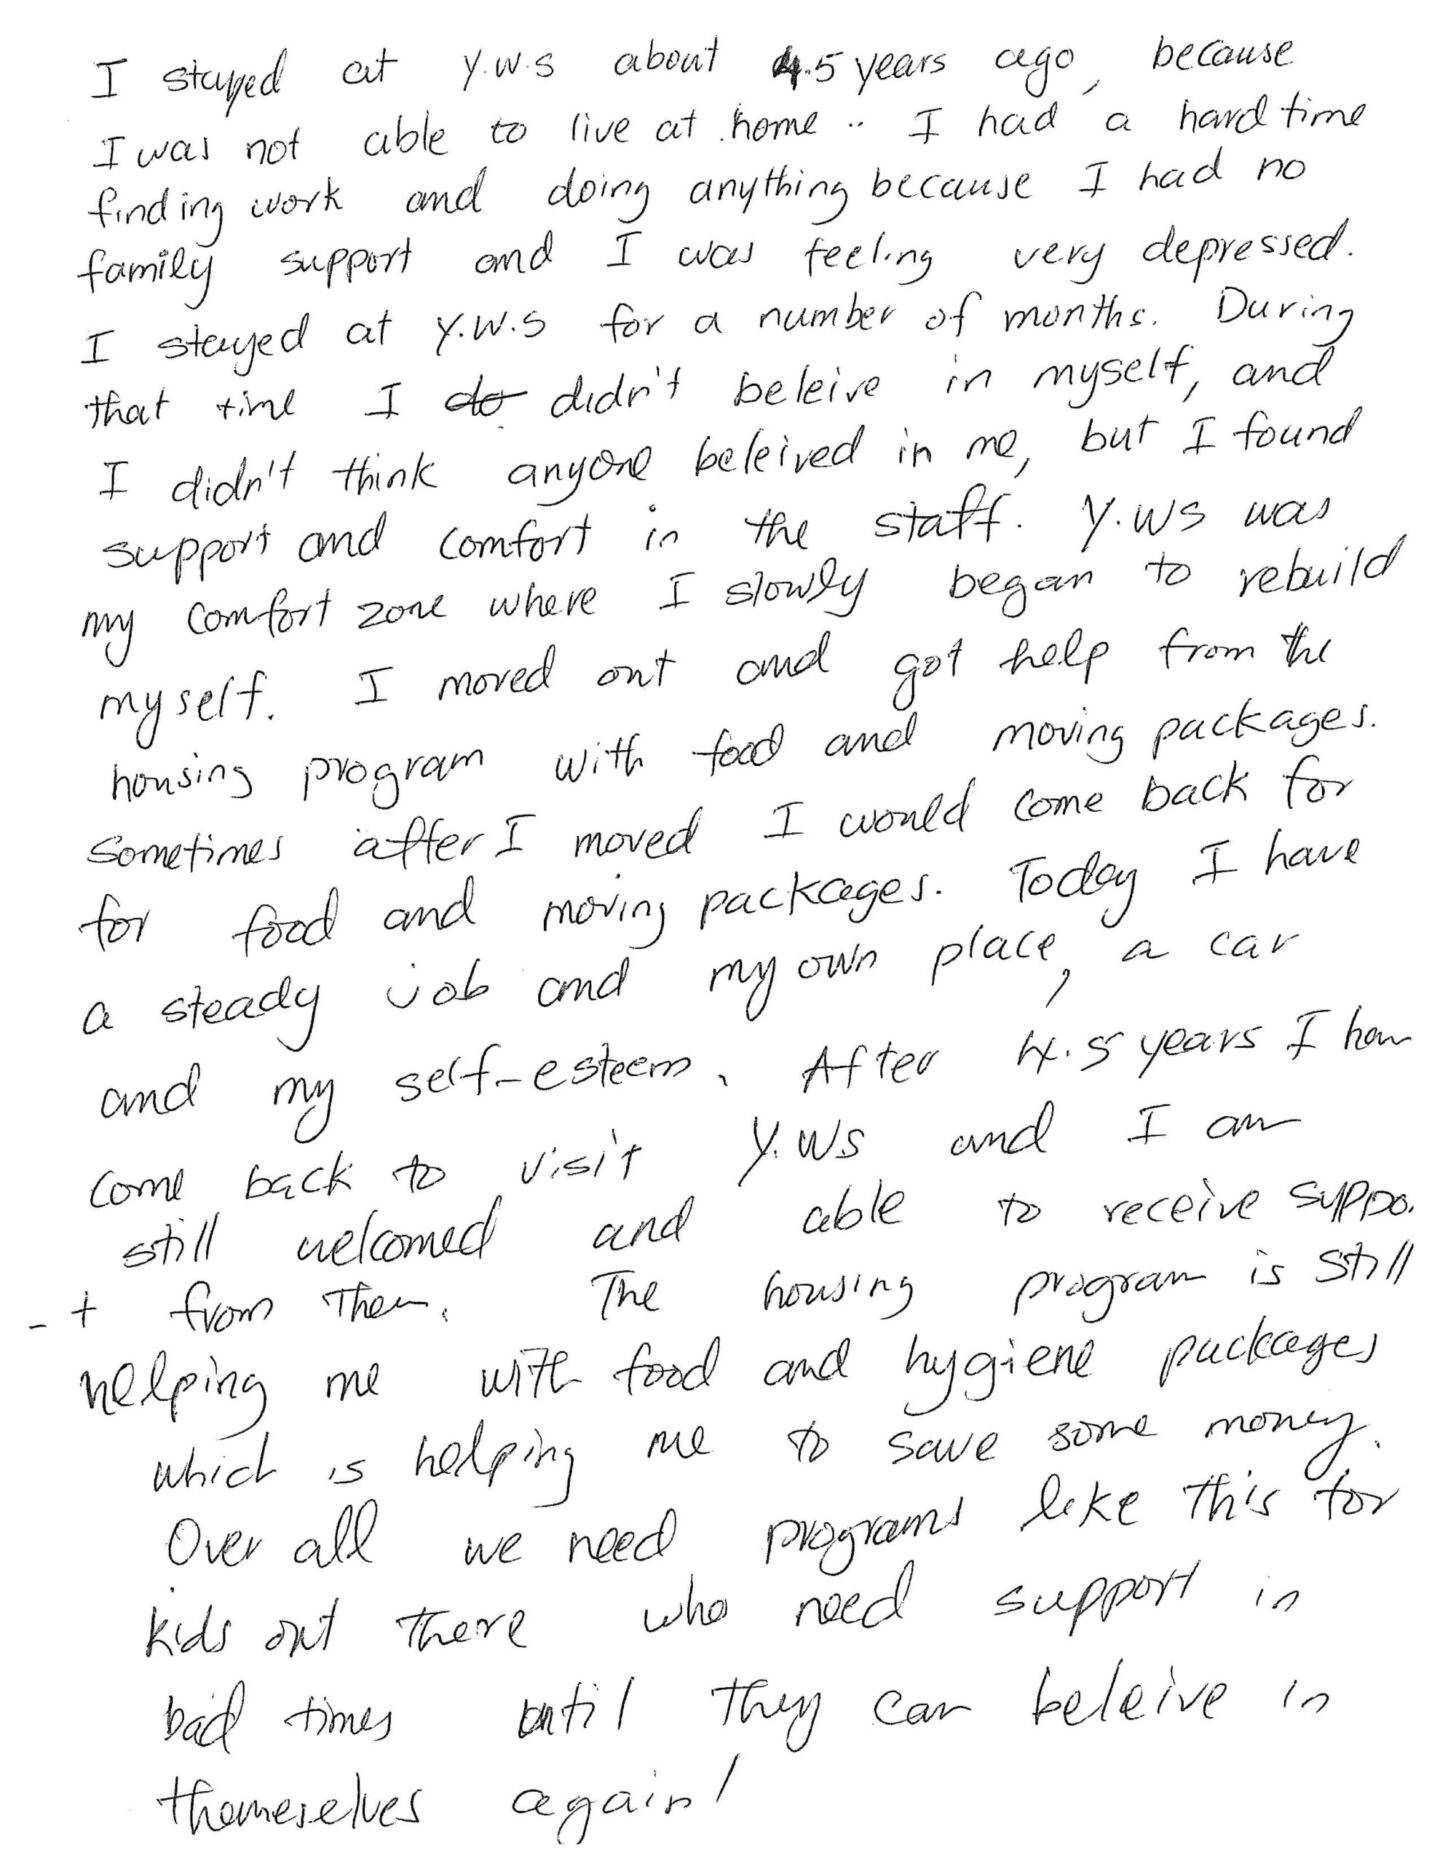 I stayed at Y.W.S about 4.5 years ago, because
I was not able to live at home.. I had a hard time
finding work and doing anything because I had no
family support and I was feeling very depressed.
I stayed at Y.W.S for a number of months. During
that time I do didn't beleive in myself, and
I didn't think anyone beleived in me, but I found
support and comfort in the staff. Y.WS was
my comfort zone where I slowly began to rebuild
myself. I moved out and got help from the
housing program with food and moving packages.
Sometimes after I moved I would come back for
for food and moving packages. Today I have
a steady job and my own place, a car
and my self-esteem. After 4.5 years I have
come back to visit Y.WS and I am
still welcomed and able to receive suppo.
-t from them. The housing program is still
helping me with food and hygiene packages
which is helping me to save some money.
Over all we need programs like this for
kids out there who need support in
bad times until they can beleive in
themeselves again!